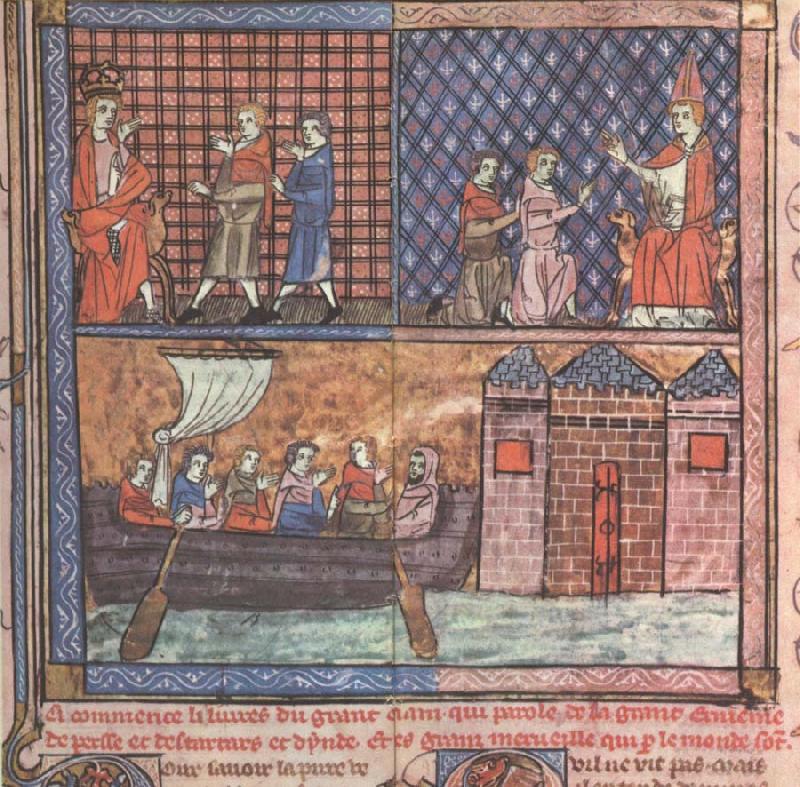 Ci commence li liures du grant Caam. qui parole. de la grant Ermenie
de persse et des tartars et dynde. Et es granz merueille qui p le monde sõt.
our sauoir la pure ve
vil ne vit pas. Mais